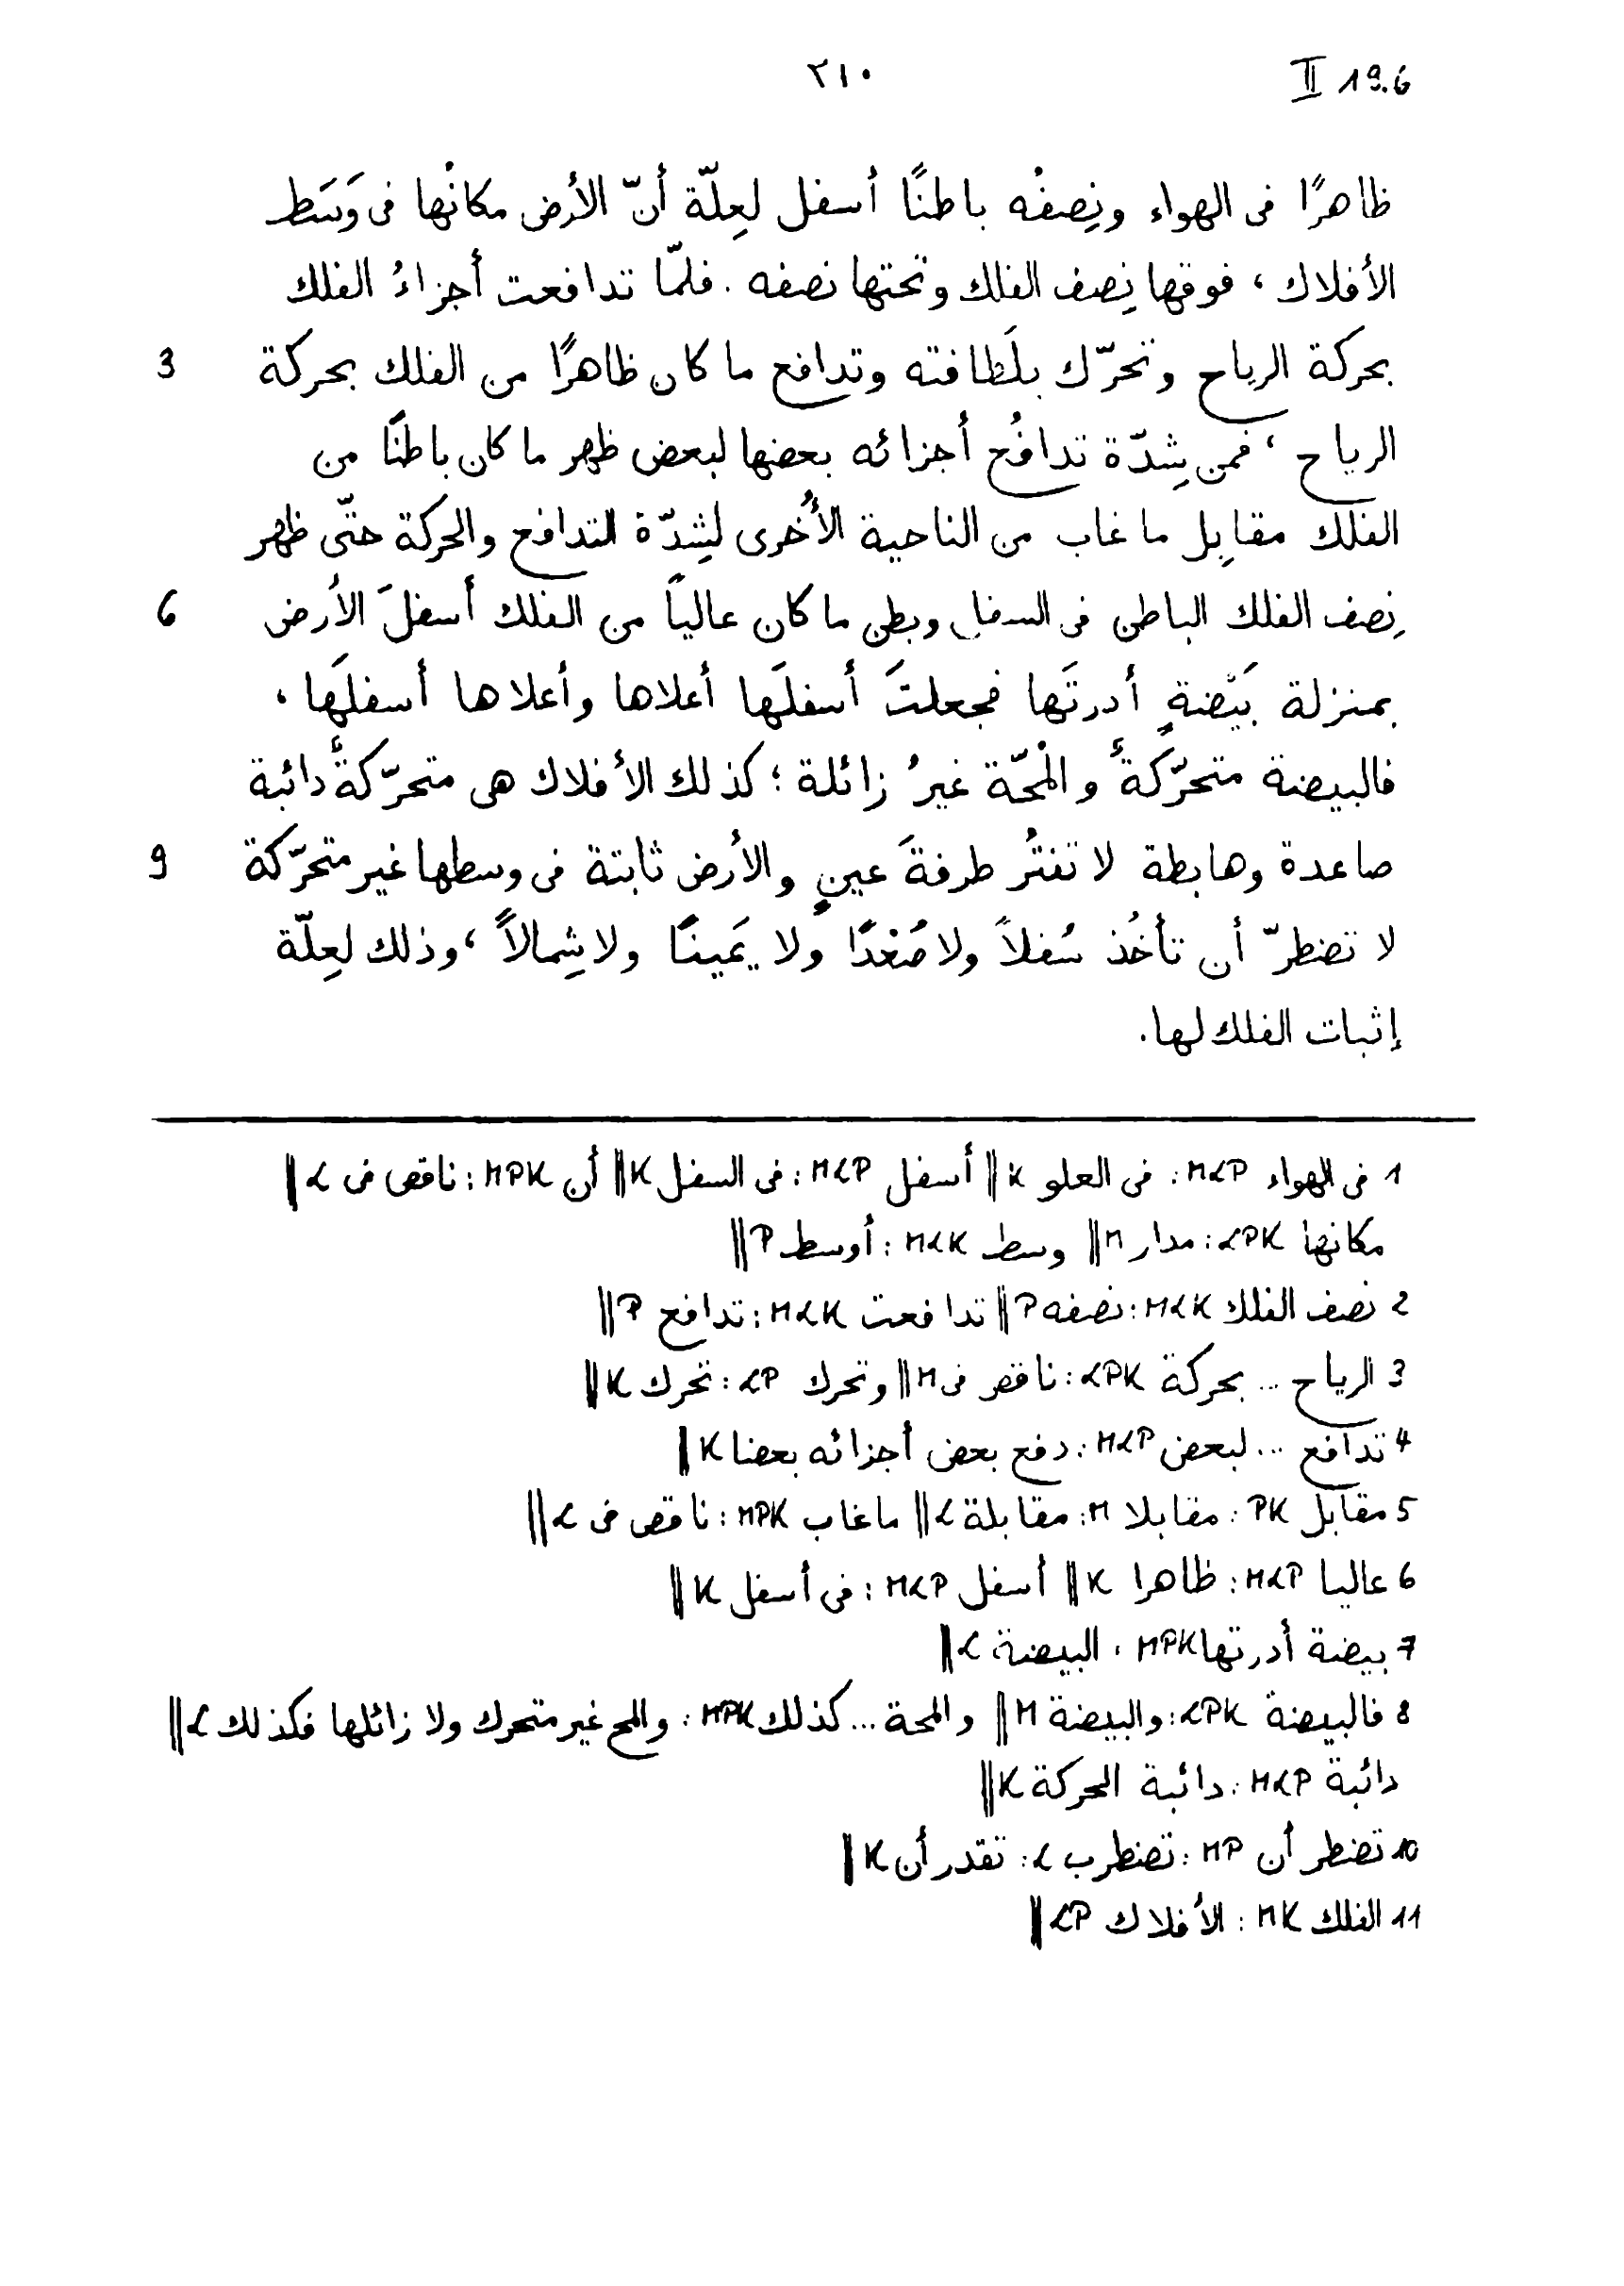 II 19.6 ٢١٠
ظاهرًا فى الهواء ونِصفُه باطنًا أسفل لعِلّة أنّ الأرض مكانُها فى وَسَط
الأفلاك ، فوقها نِصف الفلك وتحتها نصفه . فلمّا تدافعت أجزاءُ الفلك
بحركة الرياح وتحرّك بلَطافته وتدافع ما كان ظاهرًا من الفلك بحركة 3
الرياح ، فمن شِدّة تدافُع أجزائه بعضها لبعض ظهر ما كان باطنًا من
الفلك مقابِل ما غاب من الناحية الأُخرى لشِدّة التدافع والحركة حتّى ظهر
نِصف الفلك الباطن فى السفل وبطن ما كان عالياً من الفلك أسفلَ الأرض 6
بمنزلة بَيْضةٍ أدرتَها فجعلتَ أسفلَها أعلاها وأعلاها أسفلَها ،
فالبيضة متحرّكةٌ والمُحّة غيرُ زائلة ؛ كذلك الأفلاك هى متحرّكةٌ دائبة
صاعدة وهابطة لا تفتُر طرفةَ عينٍ والأرض ثابتة فى وسطها غير متحرّكة 9
لا تضطرّ أن تأخُذ سُفلاً ولا صُعْدًا ولا يَمينًا ولا شِمالاً ، وذلك لعِلّة
إثبات الفلك لها.
1 فى الهواء MLP : فى العلو K || أسفل MLP : فى السفل K || أن MPK : ناقص فى L ||
مكانها LPK : مدار M || وسط MLK : أوسط P ||
2 نصف الفلك MLK : نصفه P || تدافعت MLK : تدافع P ||
3 الرياح ... بحركة LPK : ناقص فى M || وتحرك LP : تحرك K ||
4 تدافع ... لبعض MLP : دفع بعض أجزائه بعضا K ||
5 مقابل PK : مقابلا M : مقابلة L || ما غاب MPK : ناقص فى L ||
6 عاليا MLP : ظاهرا K || أسفل MLP : فى أسفل K ||
7 بيضة أدرتها MPK : البيضة L ||
8 فالبيضة LPK : والبيضة M || والمحة ... كذلك MPK : والمح غير متحرك ولا زائلها فكذلك L ||
دائبة MLP : دائبة الحركة K ||
10 تضطر أن MP : تضطرب L : تقدر أن K ||
11 الفلك MK : الأفلاك LP ||